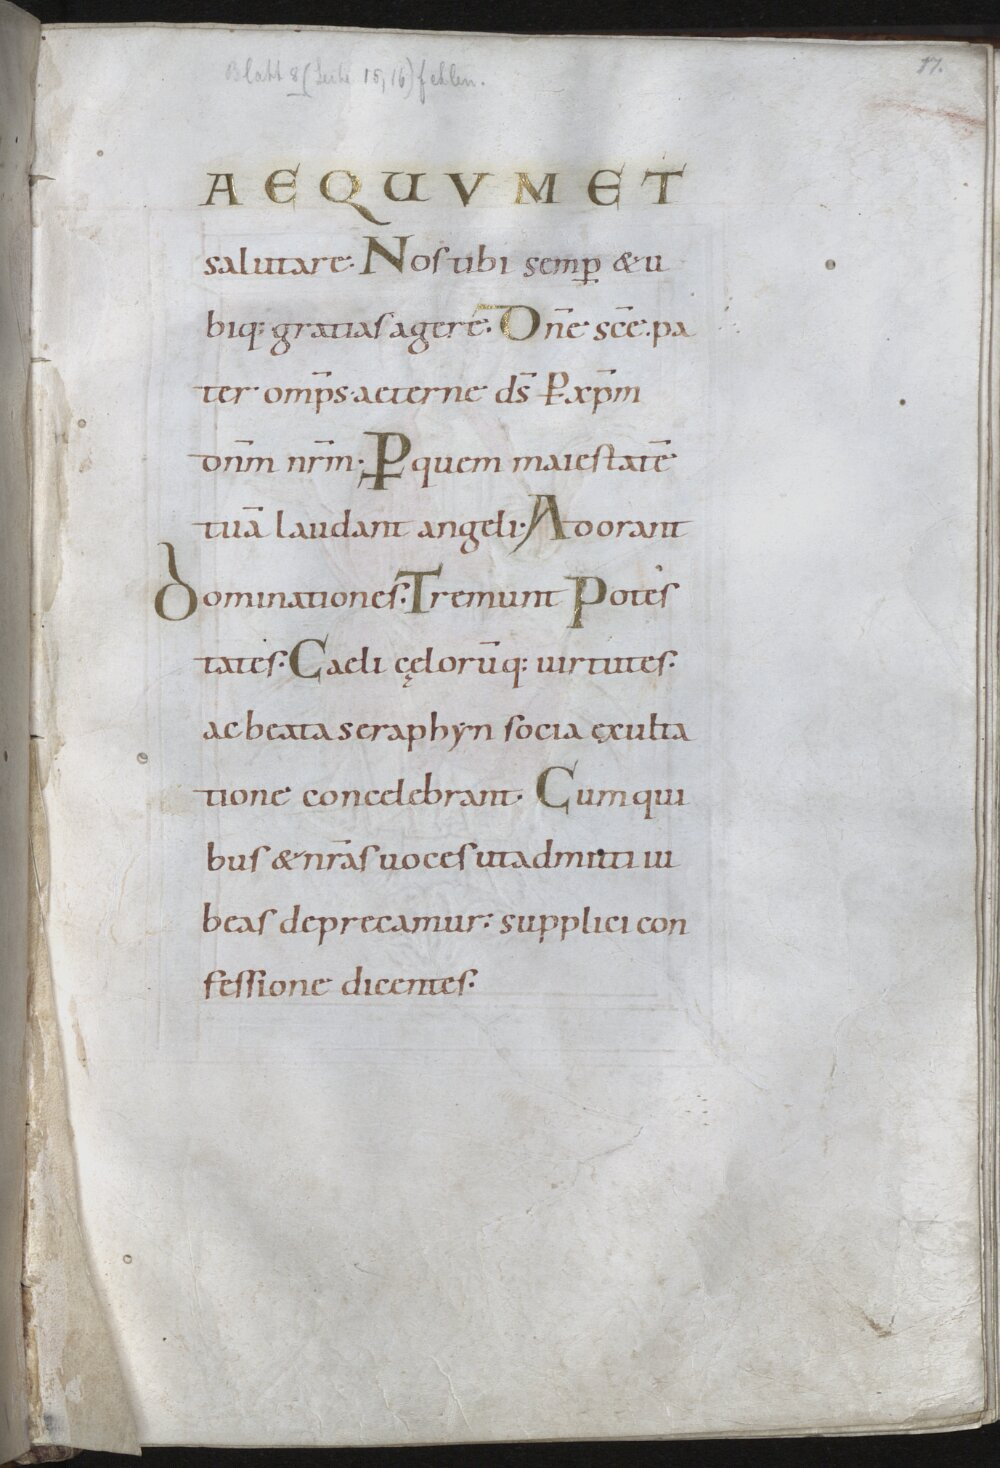 Blatt 8 (Seite 15, 16) fehlen.
17.
AEQUVM ET
salutare. Nos tibi semp̲ & u
biq: gratias agere. Dn̄e sc̄e pa
ter omp̄s aeterne ds̄ ꝑ xp̄m
dn̄m nr̄m. Ꝑ quem maiestatē
tuā laudant angeli. Adorant
dominationes. Tremunt Potes
tates. Caeli cęlorūq: uirtutes.
ac beata seraphyn socia exulta
tione concelebrant. Cum qui
bus & nrās uoces ut admitti iu
beas deprecamur: supplici con
fessione dicentes.